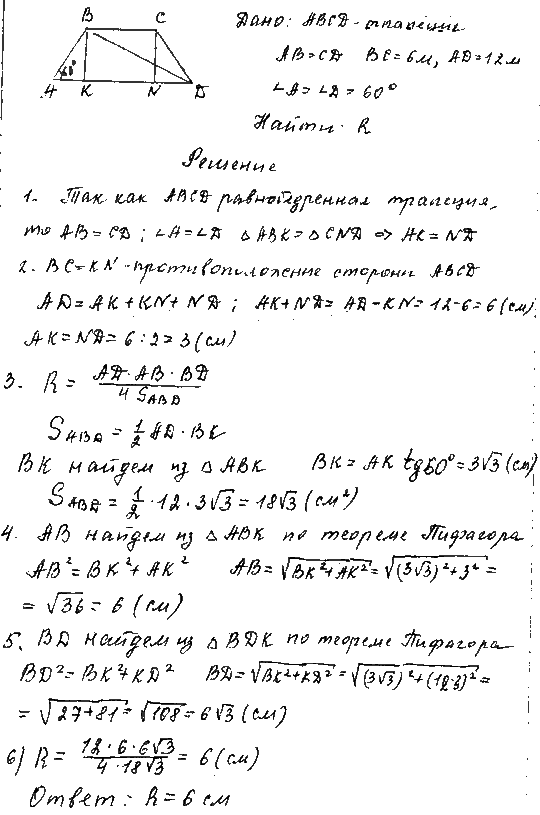 B C
A K N D
60°
Дано: ABCD - трапеция
AB = CD BC = 6м, AD = 12м
∠A = ∠D = 60°
Найти: R
Решение
1. Так как ABCD равнобедренная трапеция,
то AB = CD; ∠A = ∠D △ABK = △CND => AK = ND
2. BC = KN - противоположение стороны ABCD
AD = AK + KN + ND; AK + ND = AD - KN = 12 - 6 = 6 (см)
AK = ND = 6 : 2 = 3 (см)
3. R = AD · AB · BD / 4 S_ABD
S_ABD = 1/2 AD · BK
BK найдем из △ABK BK = AK tg60° = 3√3 (см)
S_ABD = 1/2 · 12 · 3√3 = 18√3 (см²)
4. AB найдем из △ABK по теореме Пифагора
AB² = BK² + AK² AB = √(BK² + AK²) = √((3√3)² + 3²) =
= √36 = 6 (см)
5. BD найдем из △BDK по теореме Пифагора
BD² = BK² + KD² BD = √(BK² + KD²) = √((3√3)² + (12-3)²) =
= √(27 + 81) = √108 = 6√3 (см)
6) R = 12 · 6 · 6√3 / 4 · 18√3 = 6 (см)
Ответ: R = 6 см